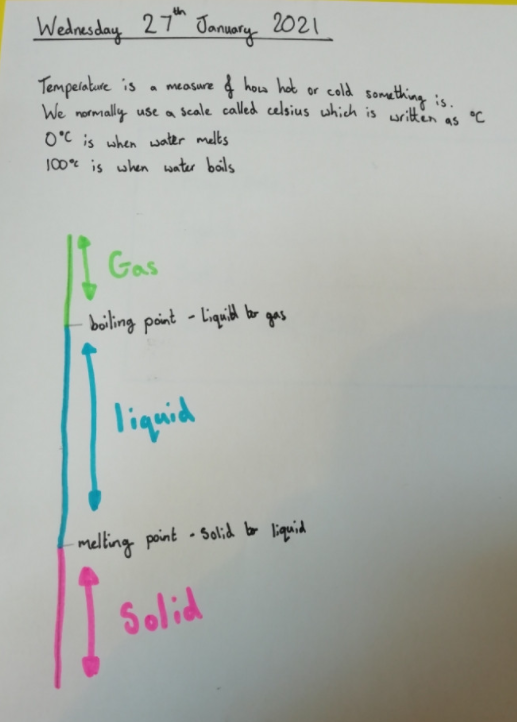 Wednesday 27th January 2021
Temperature is a measure of how hot or cold something is.
We normally use a scale called celsius which is written as °C
0°C is when water melts
100°C is when water boils
Gas
boiling point - Liquid to gas
liquid
melting point - Solid to liquid
Solid